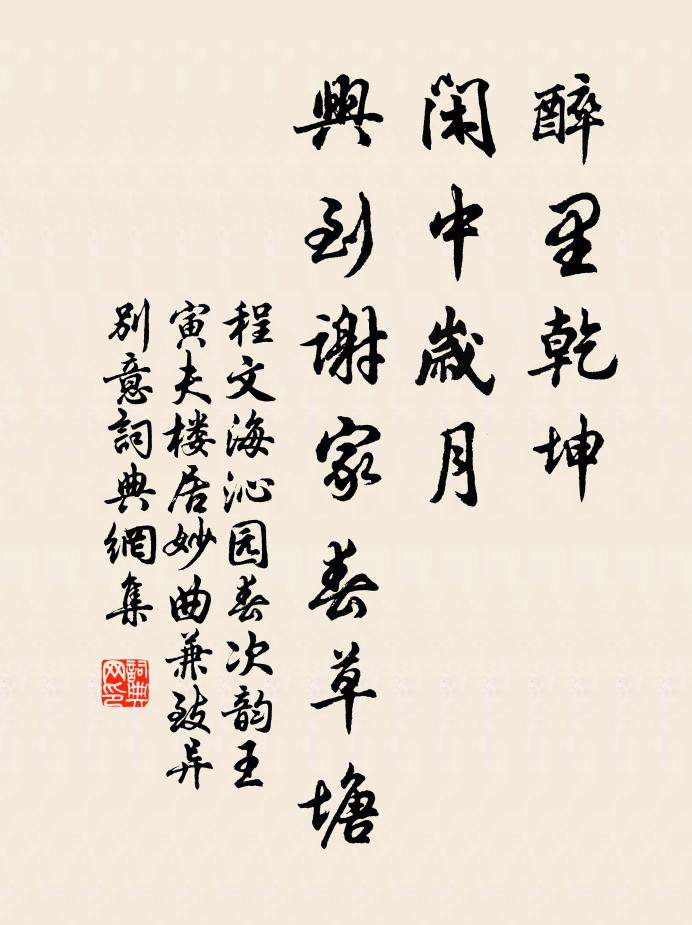 醉里乾坤
闲中歲月
興到谢家春草塘
程文海沁园春次韵王
寅夫楼居妙曲兼致异
别意詞典網集
詞典网印